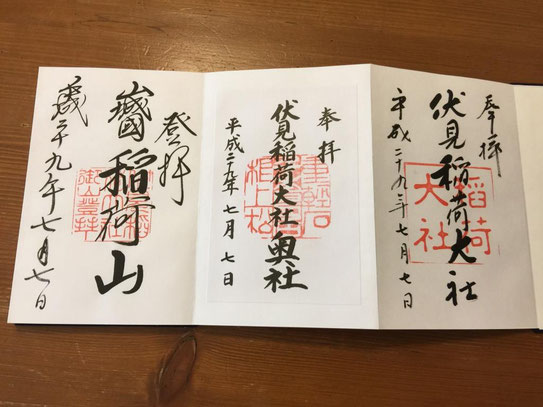 奉拝
伏見稲荷大社
平成二十九年七月七日
稲荷
大社
奉拝
伏見稲荷大社奥社
平成二十九年七月七日
重軽石
根上松
登拝
稲荷山
二十九年七月七日
御山登拝